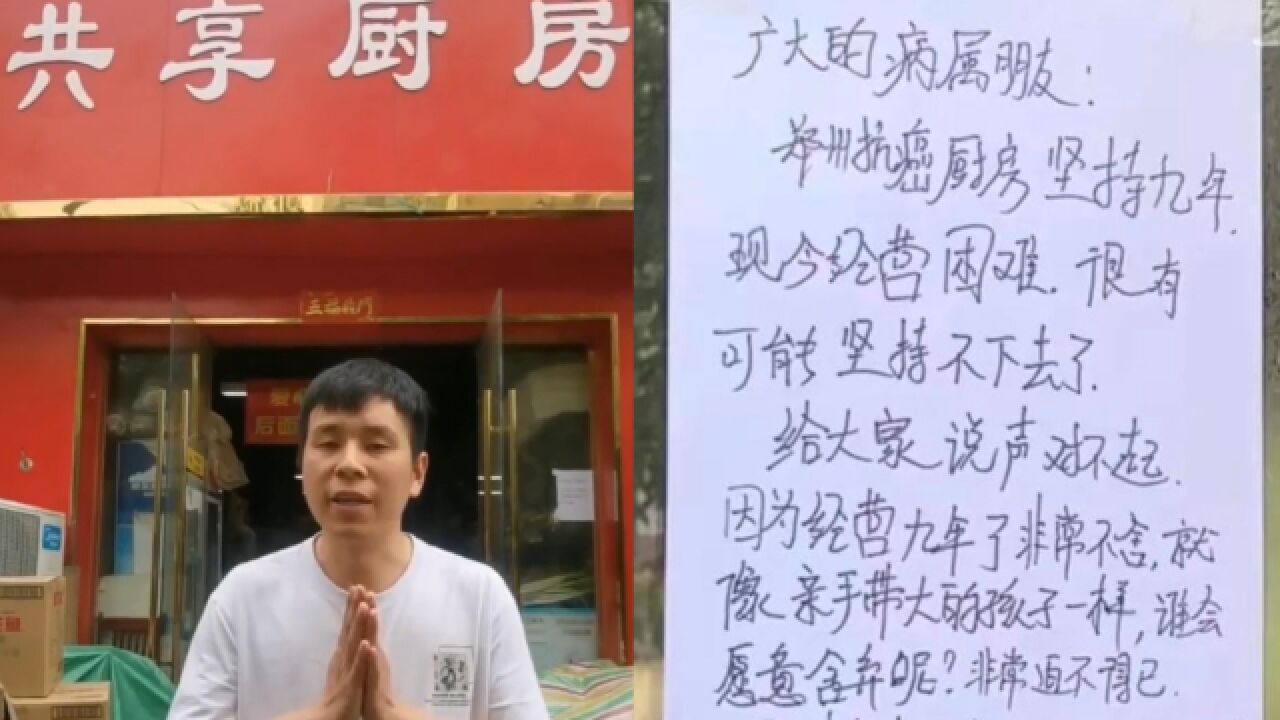 共享厨房
五福临门
后面
广大的病属朋友:
郑州抗癌厨房坚持九年.
现今经营困难.很有
可能坚持不下去了.
给大家说声对不起.
因为经营九年了非常不舍,就
像亲手带大的孩子一样,谁会
愿意舍弃呢?非常迫不得已.